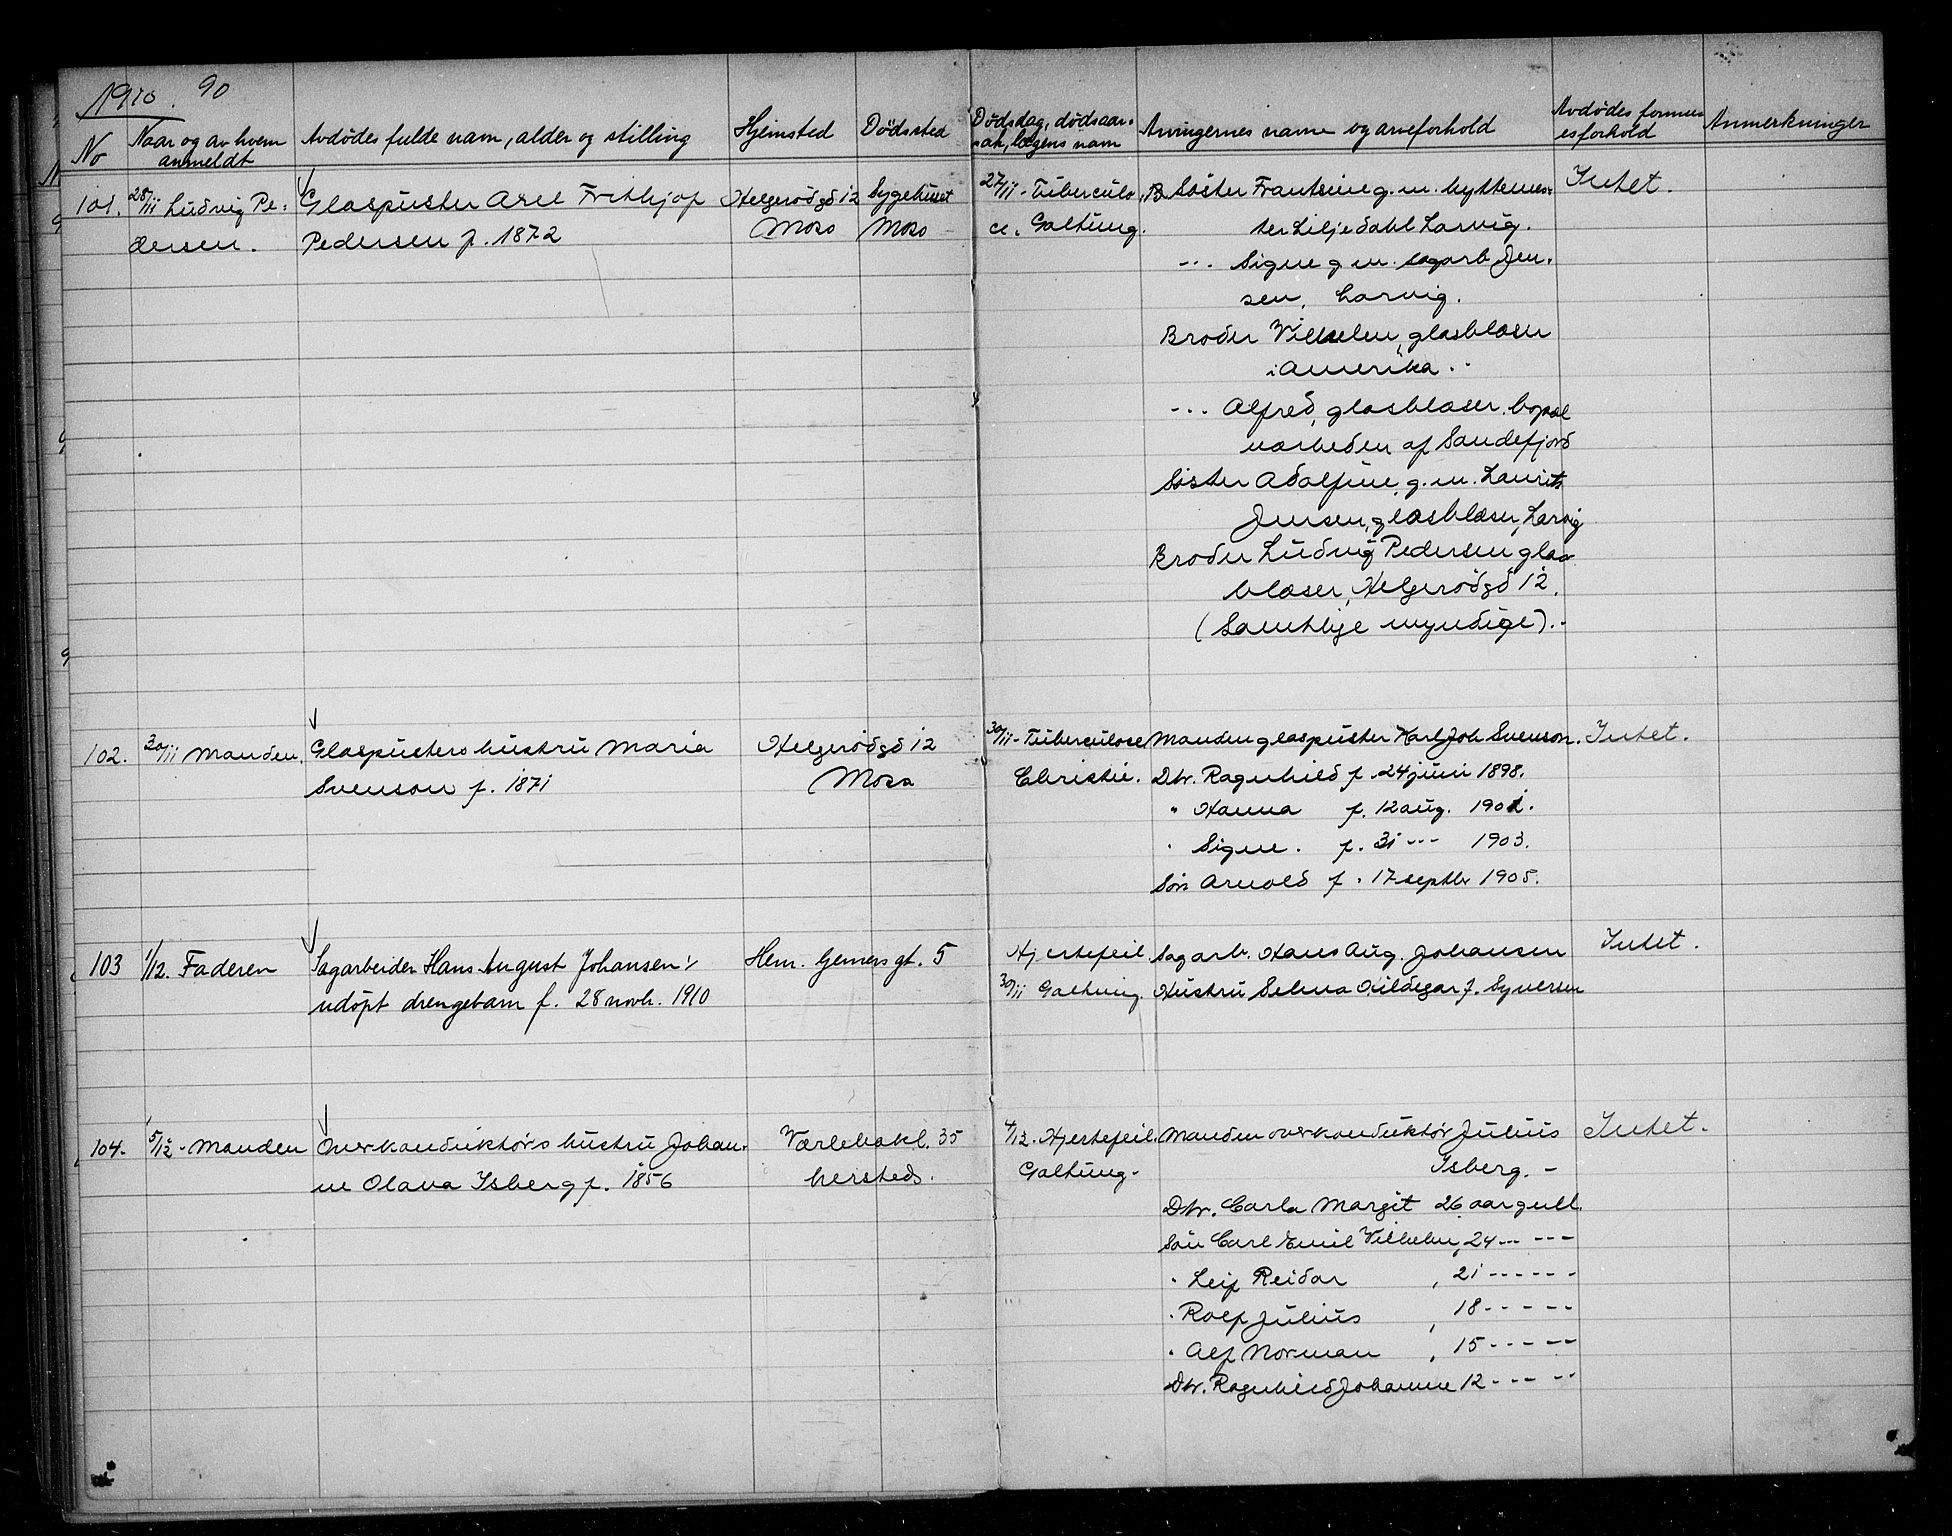 1910. 90
No
Naar og av hvem anmeldt
Avdødes fulde navn, alder og stilling
Hjemsted
Dødssted
Dødsdag, dødsaar-
sak, lægens navn
Arvingernes navne og arveforhold
Avdødes formu-
esforhold
Anmerkninger
101. 28/11 Ludvig Pe-
dersen.
Glaspuster Axel Frithjof
Pedersen f. 1872
Helgerödgd 12
Moss
Sygehuset
Moss
27/11 - Tuberculo
ce. Galtung.
Søster Frantsine g. m. hyttemes-
ter Liljedahl Larvig.
-.. Signe g m. sagarb Jen-
sen, Larvig.
Broder Vilhelm, glasblæser
i Amerika.
-.. Alfred, glasblæser, bopæl
nærheden af Sandefjord
Søster Adolfine, g. m. Laurits
Jensen, glasblæser, Larvig
Broder Ludvig Pedersen glas
blæser, Helgerödgd 12.
(Samtlige myndige).
Intet.
102. 30/11 Manden.
Glaspusters hustru Maria
Svenson f. 1871
Helgerödgd 12
Moss
30/11 - Tuberculose
Christie.
Manden glaspuster Karl Joh Svenson.
Dtr. Ragnhild f. 24 juni 1898.
" Hanna f. 12 aug. 1901.
" Signe. f. 31 --- 1903.
Søn Arnold f. 17 septbr 1905.
Intet.
103 1/12. Faderen
Sagarbeider Hans August Johansens
udöpt drengebarn f. 28 novb. 1910
Hen. Gerners gt. 5
Hjertefeil
30/11 Galtung.
Sagarb. Hans Aug. Johansen
Hustru Selma Hildegar f. Syversen
Intet.
104. 5/12 - Manden
Overkonduktørs hustru Johan-
ne Olava Isberg f. 1856
Værlebakl. 35
hersteds.
4/12. Hjertefeil.
Galtung-
Manden overkonduktør Julius
Isberg. -
Dtr. Carla Margit 26 aar gull.
Søn Carl Emil Vilhelm, 24 --- ---
" Leif Reidar , 21 ------
" Rolf Julius , 18 -----
" Alf Norman , 15 -----
Dtr. Ragnhild Johanne 12 --- --
Intet.